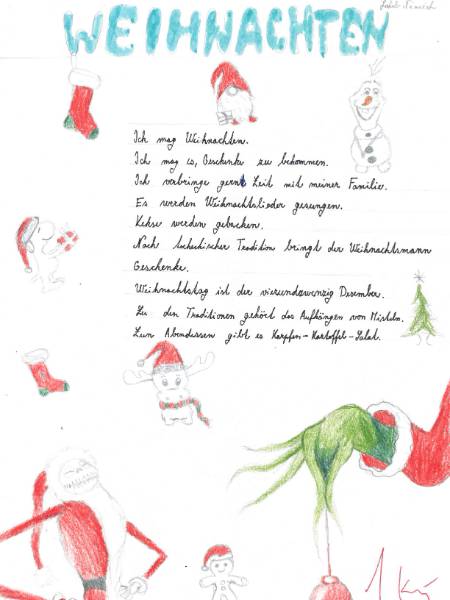 WEIHNACHTEN
Ich mag Weihnachten.
Ich mag es, Geschenke zu bekommen.
Ich verbringe gern Zeit mit meiner Familie.
Es werden Weihnachtslieder gesungen.
Kekse werden gebacken.
Nach tschechischer Tradition bringt der Weihnachtsmann
Geschenke.
Weihnachtstag ist der vierundzwanzig Dezember.
Zu den Traditionen gehört das Aufhängen von Misteln.
Zum Abendessen gibt es Karpfen-Kartoffel-Salat.
1